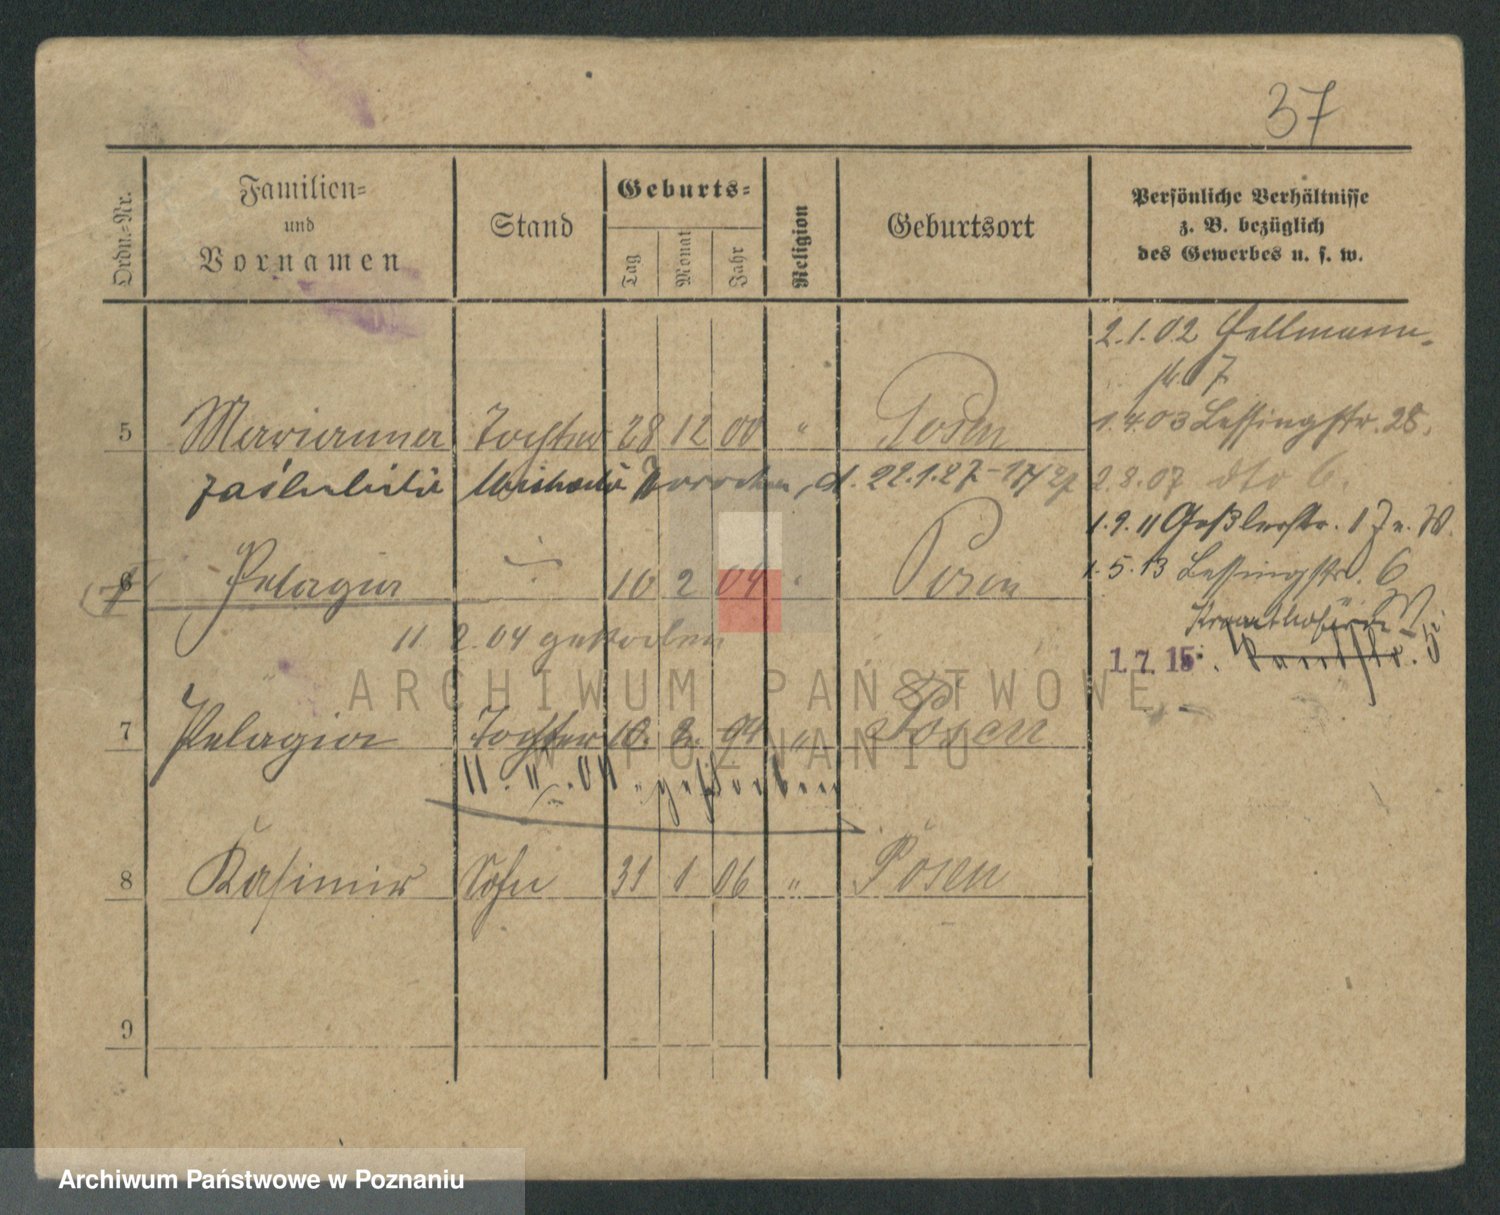 37
Ordn.-Nr.
Familien-
und
Vornamen
Stand
Geburts-
Tag
Monat
Jahr
Religion
Geburtsort
Persönliche Verhältnisse
z. B. bezüglich
des Gewerbes u. s. w.
2.1.02 Hellmann-
str 7
5 Marianna Tochter 28 12 00 " Posen
1.4.03 Lessingstr. 28.
zaślubiła d. 22.1.27
2.8.07 dto 6.
1.9.11 Geßlerstr. 1
6 Pelagia 10 2 04 " Posen
1.5.13 Lessingstr. 6
11 2.04 gestorben
1.7.15. 5
ARCHIWUM PAŃSTWOWE
W POZNANIU
7 Pelagia Tochter 10. 2. 04 " Posen
11. II. 04 gestorben
8 Kasimir Sohn 31 1 06 " Posen
9
Archiwum Państwowe w Poznaniu